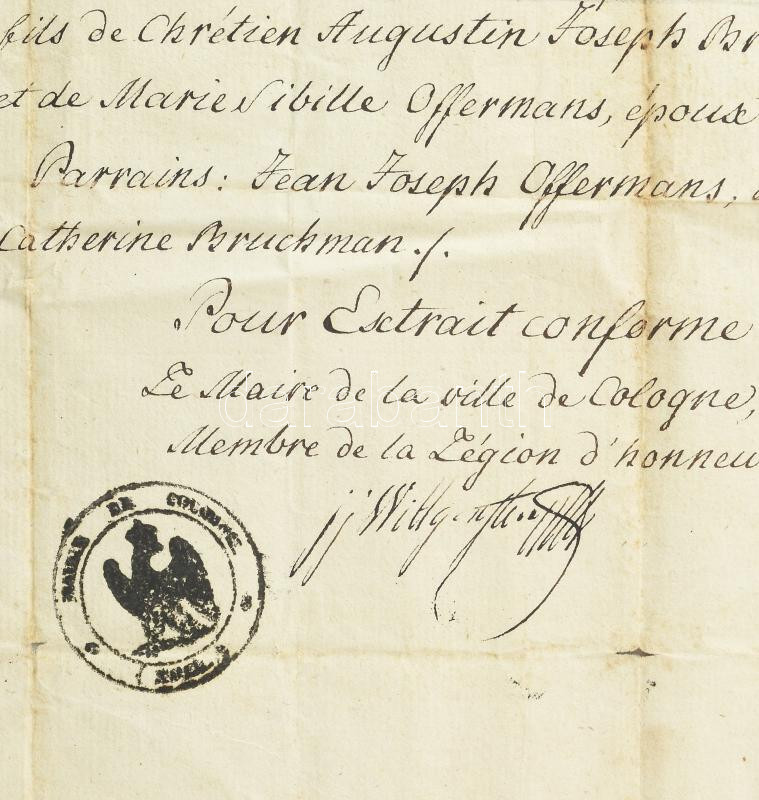 fils de Chrétien Augustin Joseph Br
et de Marie Sibille Offermans, époux
Parrains: Jean Joseph Offermans,
Catherine Bruchman ./.
Pour Esctrait conforme
Le Maire de la ville de Cologne,
Membre de la Légion d'honneu
MAIRIE DE COLOGNE
darabanth